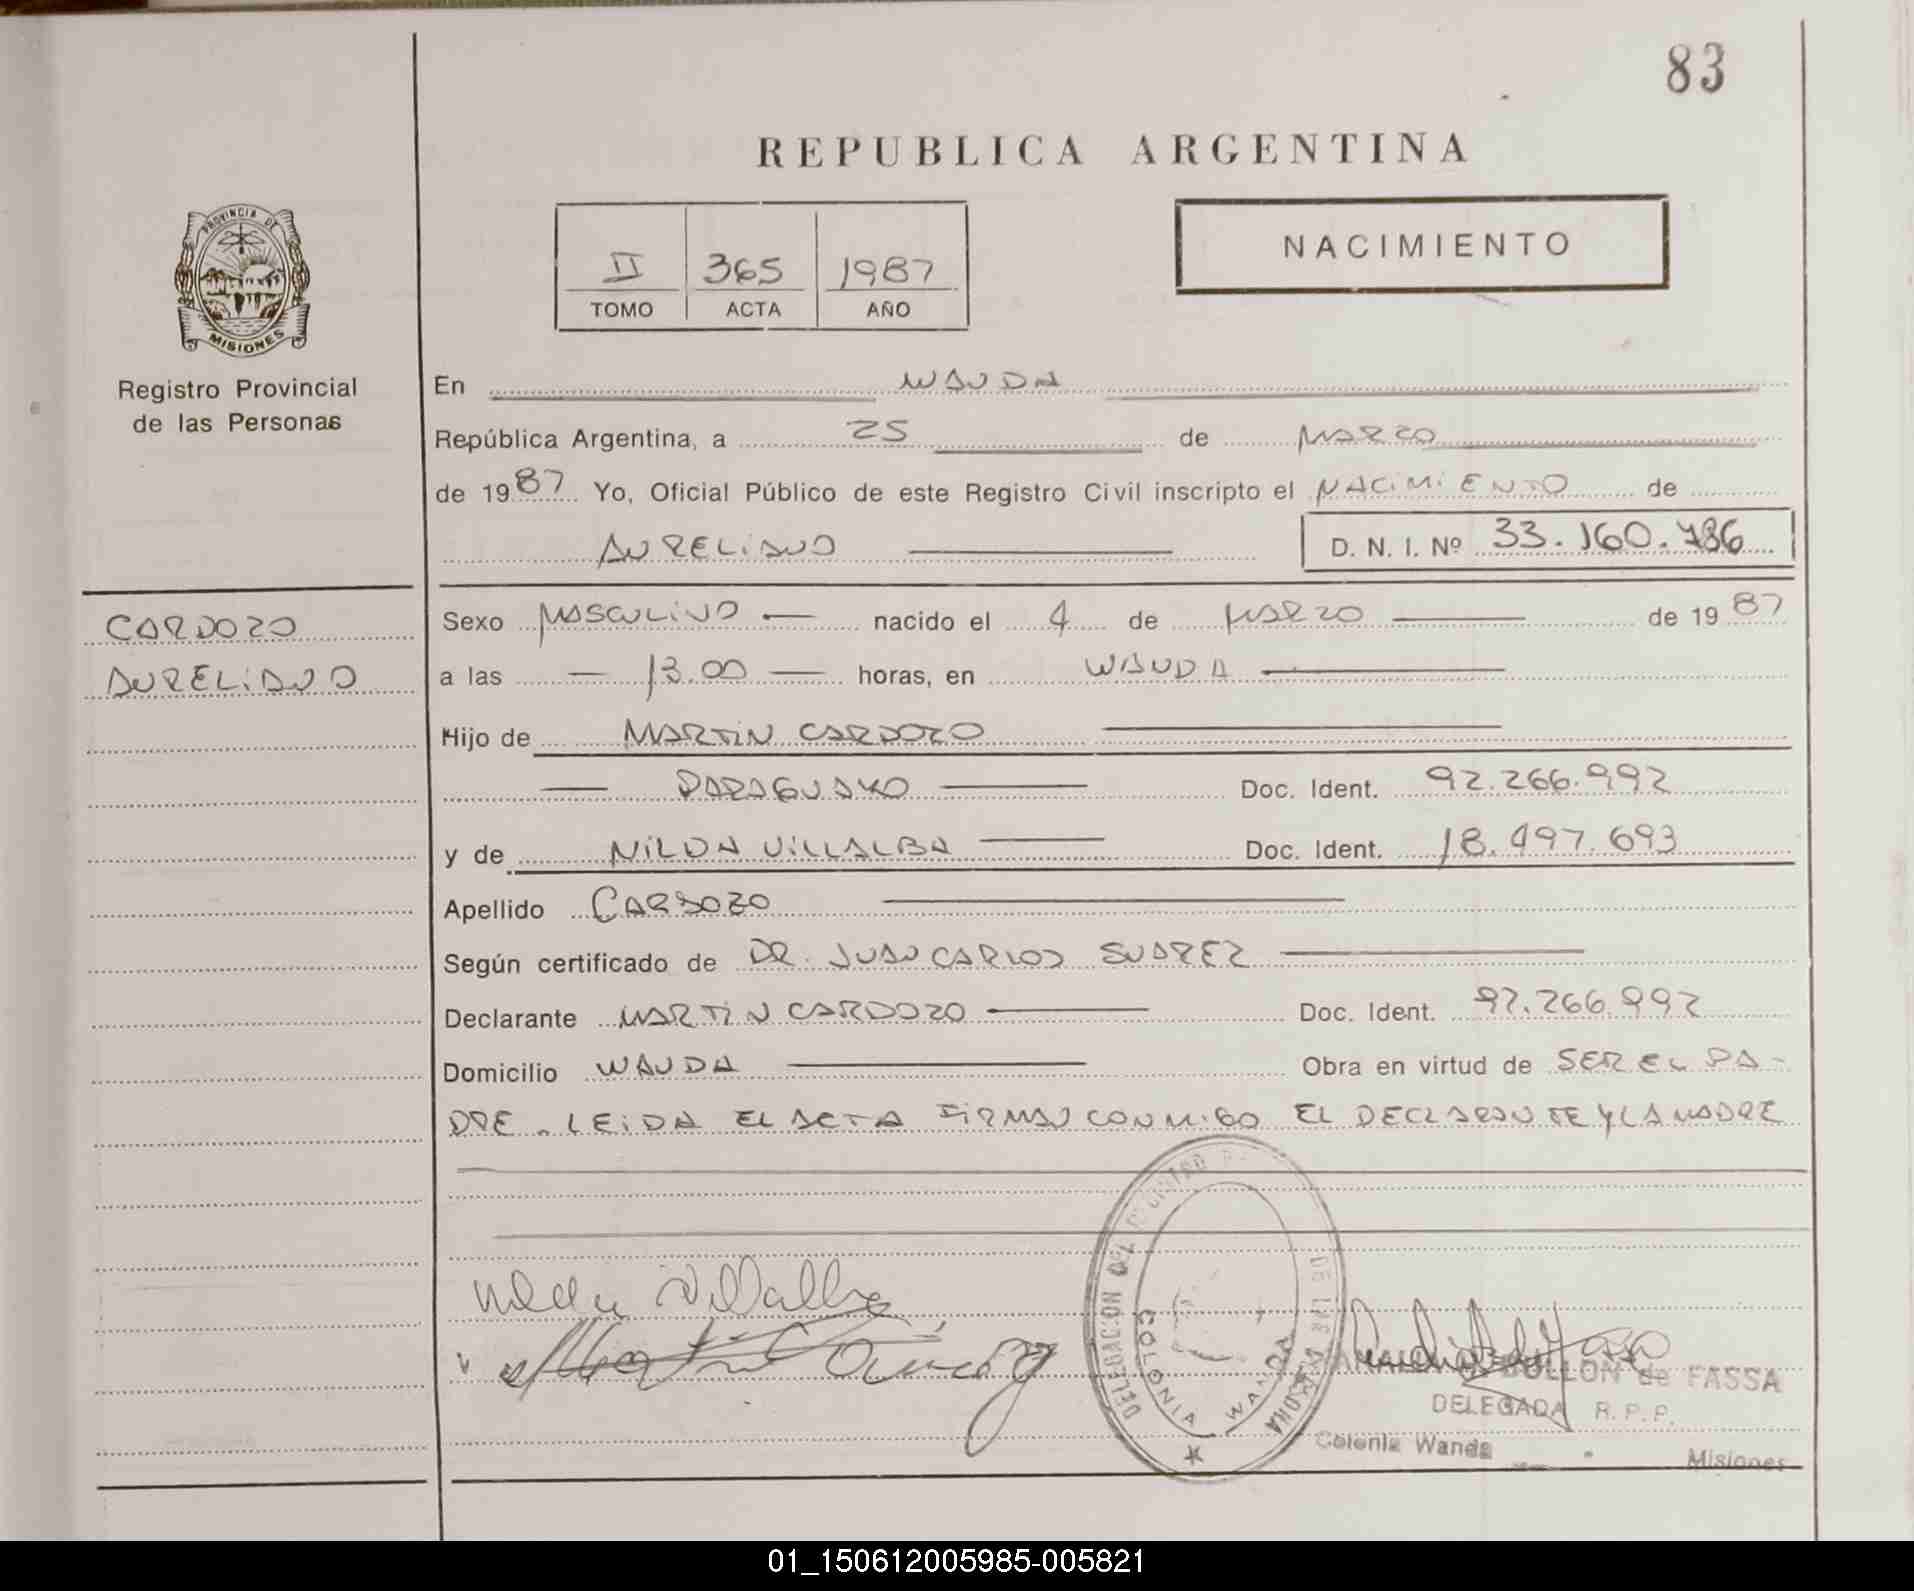 83
REPUBLICA ARGENTINA
PROVINCIA DE
MISIONES
Registro Provincial
de las Personas
II 365 1987
TOMO ACTA AÑO
NACIMIENTO
En WANDA
República Argentina, a 25 de MARZO
de 1987 Yo, Oficial Público de este Registro Civil inscripto el NACIMIENTO de
AURELIANO D. N. I. Nº 33.160.786
CARDOZO
AURELIANO
Sexo MASCULINO nacido el 4 de MARZO de 1987
a las 13.00 horas, en WANDA
Hijo de MARTIN CARDOZO
PARAGUAYO Doc. Ident. 92.266.992
y de NILDA VILLALBA Doc. Ident. 18.497.693
Apellido CARDOZO
Según certificado de DR. JUAN CARLOS SUAREZ
Declarante MARTIN CARDOZO Doc. Ident. 92.266.992
Domicilio WANDA Obra en virtud de SER EL PA-
DRE. LEIDA EL ACTA FIRMAN CONMIGO EL DECLARANTE Y LA MADRE
Nilda Villalba
DELEGACION DEL REGISTRO DE LAS PERSONAS
COLONIA WANDA
BULLON de FASSA
DELEGADA R. P. P.
Colonia Wanda Misiones
01_150612005985-005821